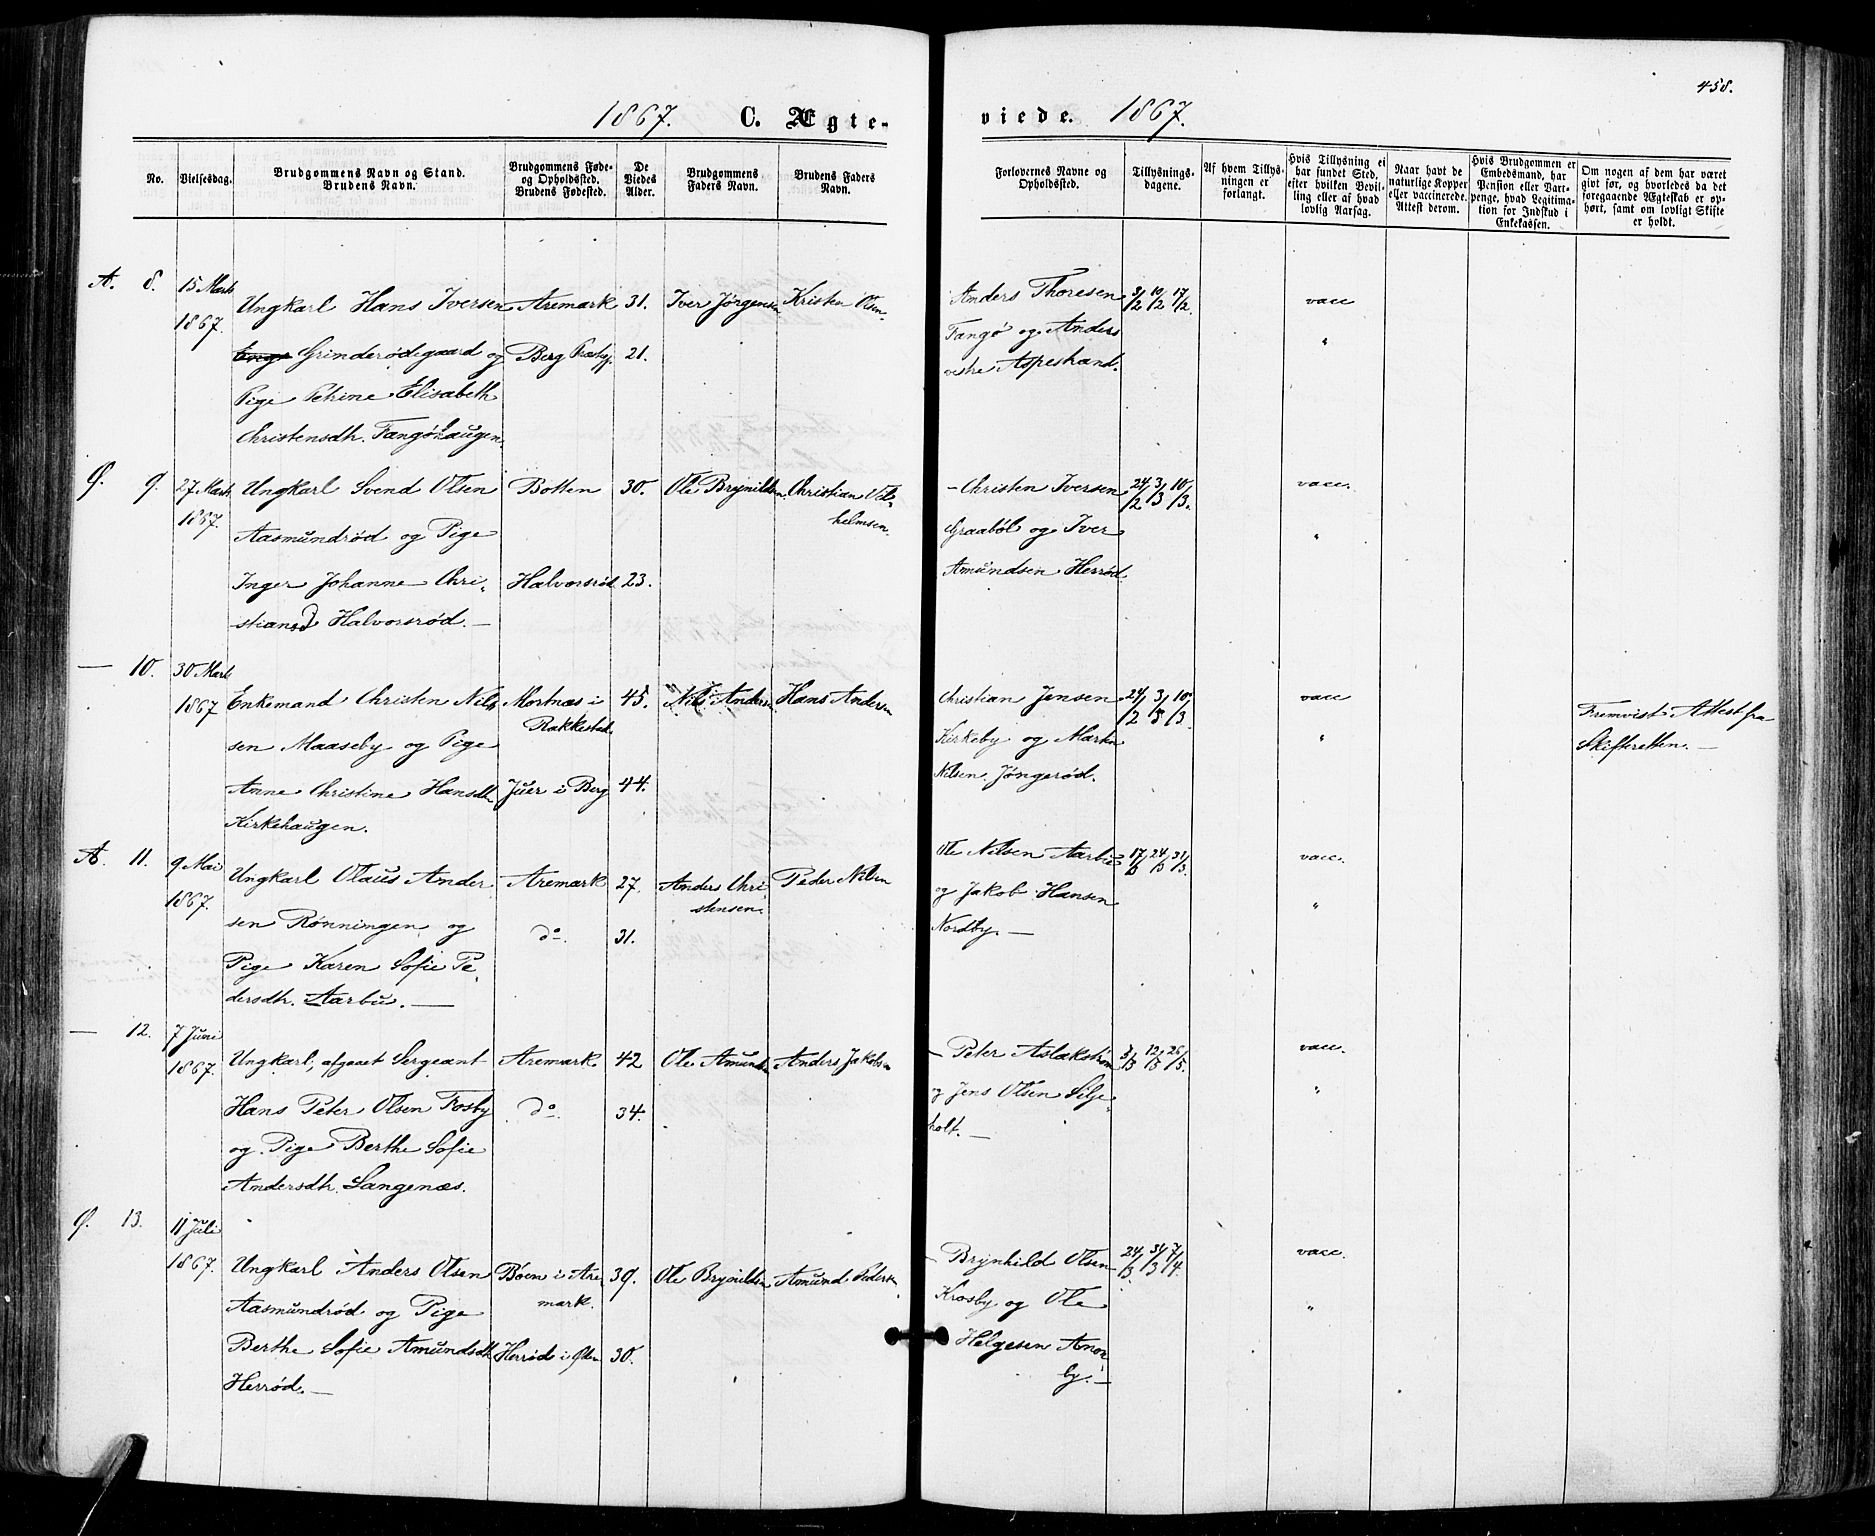 458.
1867. C. Ægte-
viede. 1867.
No.
Vielsesdag.
Brudgommens Navn og Stand.
Brudens Navn.
Brudgommens Føde-
og Opholdssted.
Brudens Fødested.
De
Viedes
Alder.
Brudgommens
Faders Navn.
Brudens Faders
Navn.
Forlovernes Navne og
Opholdssted.
Tillysnings-
dagene.
Af hvem Tillys-
ningen er
forlangt.
Hvis Tillysning ei
har fundet Sted,
efter hvilken Bevil-
ling eller af hvad
lovlig Aarsag.
Naar havt de
naturlige Kopper
eller vaccinerede.
Attest derom.
Hvis Brudgommen er
Embedsmand, har
Pension eller Vart-
penge, hvad Legitima-
tion for Indskud i
Enkekassen.
Om nogen af dem har været
givt før, og hvorledes da det
foregaaende Ægteskab er op-
hørt, samt om lovligt Skifte
er holdt.
A. 8. 15 Marts
1867.
Ungkarl Hans Iversen
Grinderødegaard og
Pige Petrine Elisabeth
Christensdh. Fangöhaugen.
Aremark 31.
Berg Præstgj. 21.
Iver Jørgensen
Kristen Olsen
Anders Thoresen
Fangø og Anders
vestre Aspestrand.
3/2 10/2 17/2.
vacc
"
Ø. 9. 27 Marts
1867.
Ungkarl Svend Olsen
Aasmundrød og Pige
Inger Johanne Chri-
stiansd Halvorsrød. —
Botten 30.
Halvorsrød 23.
Ole Brynildsen
Christian Vil-
helmsen.
- Christen Iversen
Graaböl og Iver
Amundsen Herrød
24/2 3/3 10/3.
vacc.
"
— 10. 30 Marts
1867
Enkemand Christen Nils
sen Maaseby og Pige
Anne Christine Hansdh
Kirkehaugen.
Mortnæs i
Rakkestad. 45.
Juer i Berg 44.
Nils Andersen
Hans Andersen
Christian Jensen
Kirkeby og Marten
Nilsen Jöngerød.
24/2 3/3 10/3.
vacc
"
Fremvist Attest fra
Skifteretten. —
A. 11. 9 Mai
1867.
Ungkarl Olaus Ander
sen Rönningen og
Pige Karen Sofie Pe-
dersdh. Aarbu. —
Aremark 27.
do. 31.
Anders Chri-
stensen.
Peder Nilsen
Ole Nilsen Aarbu
og Jakob Hansen
Nordby. —
17/3 24/3 31/3.
vacc.
"
— 12. 7 Juni
1867.
Ungkarl, afgaaet Sergeant
Hans Peter Olsen Fosby
og Pige Berthe Sofie
Andersdh. Langenæs.
Aremark 42
do. 34.
Ole Amundsen
Anders Jakobsen
- Peter Aslakstrøm
og Jens Olsen Silje-
holt. —
12/5 26/5.
vacc.
"
Ø. 13. 11 Juli
1867.
Ungkarl Anders Olsen
Aasmundrød og Pige
Berthe Sofie Amundsdh
Herrød. —
Böen i Are
mark. 39.
Herrød i Øden 30.
Ole Brynildsen
Amund Pedersen
- Brynhild Olsen
Krosby og Ole
Helgesen Anon
by. —
24/3 31/3 7/4.
vacc.
"